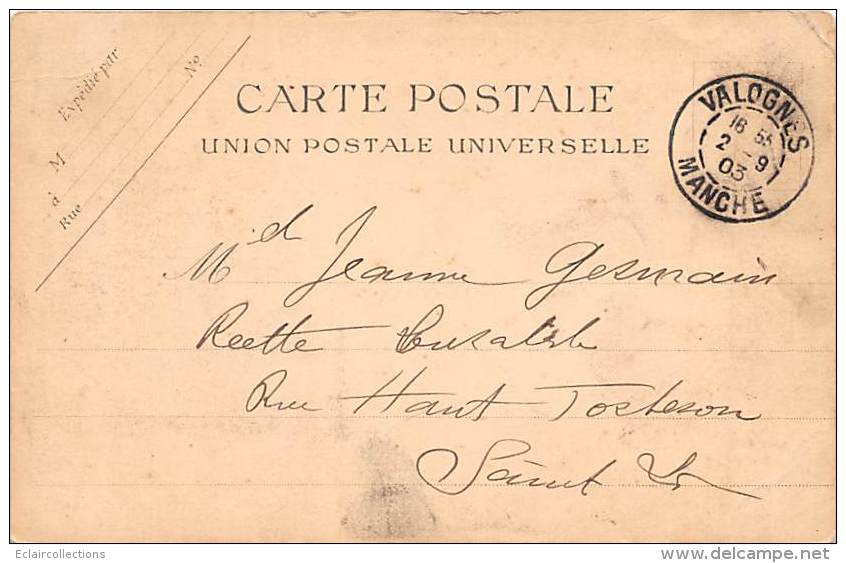 Expédié par
M
à
Rue
No
CARTE POSTALE
UNION POSTALE UNIVERSELLE
VALOGNES
16 55
2 - 9
03
MANCHE
Md Jeanne Germain
Rue Haut
Saint Lô
Eclaircollections
www.delcampe.net